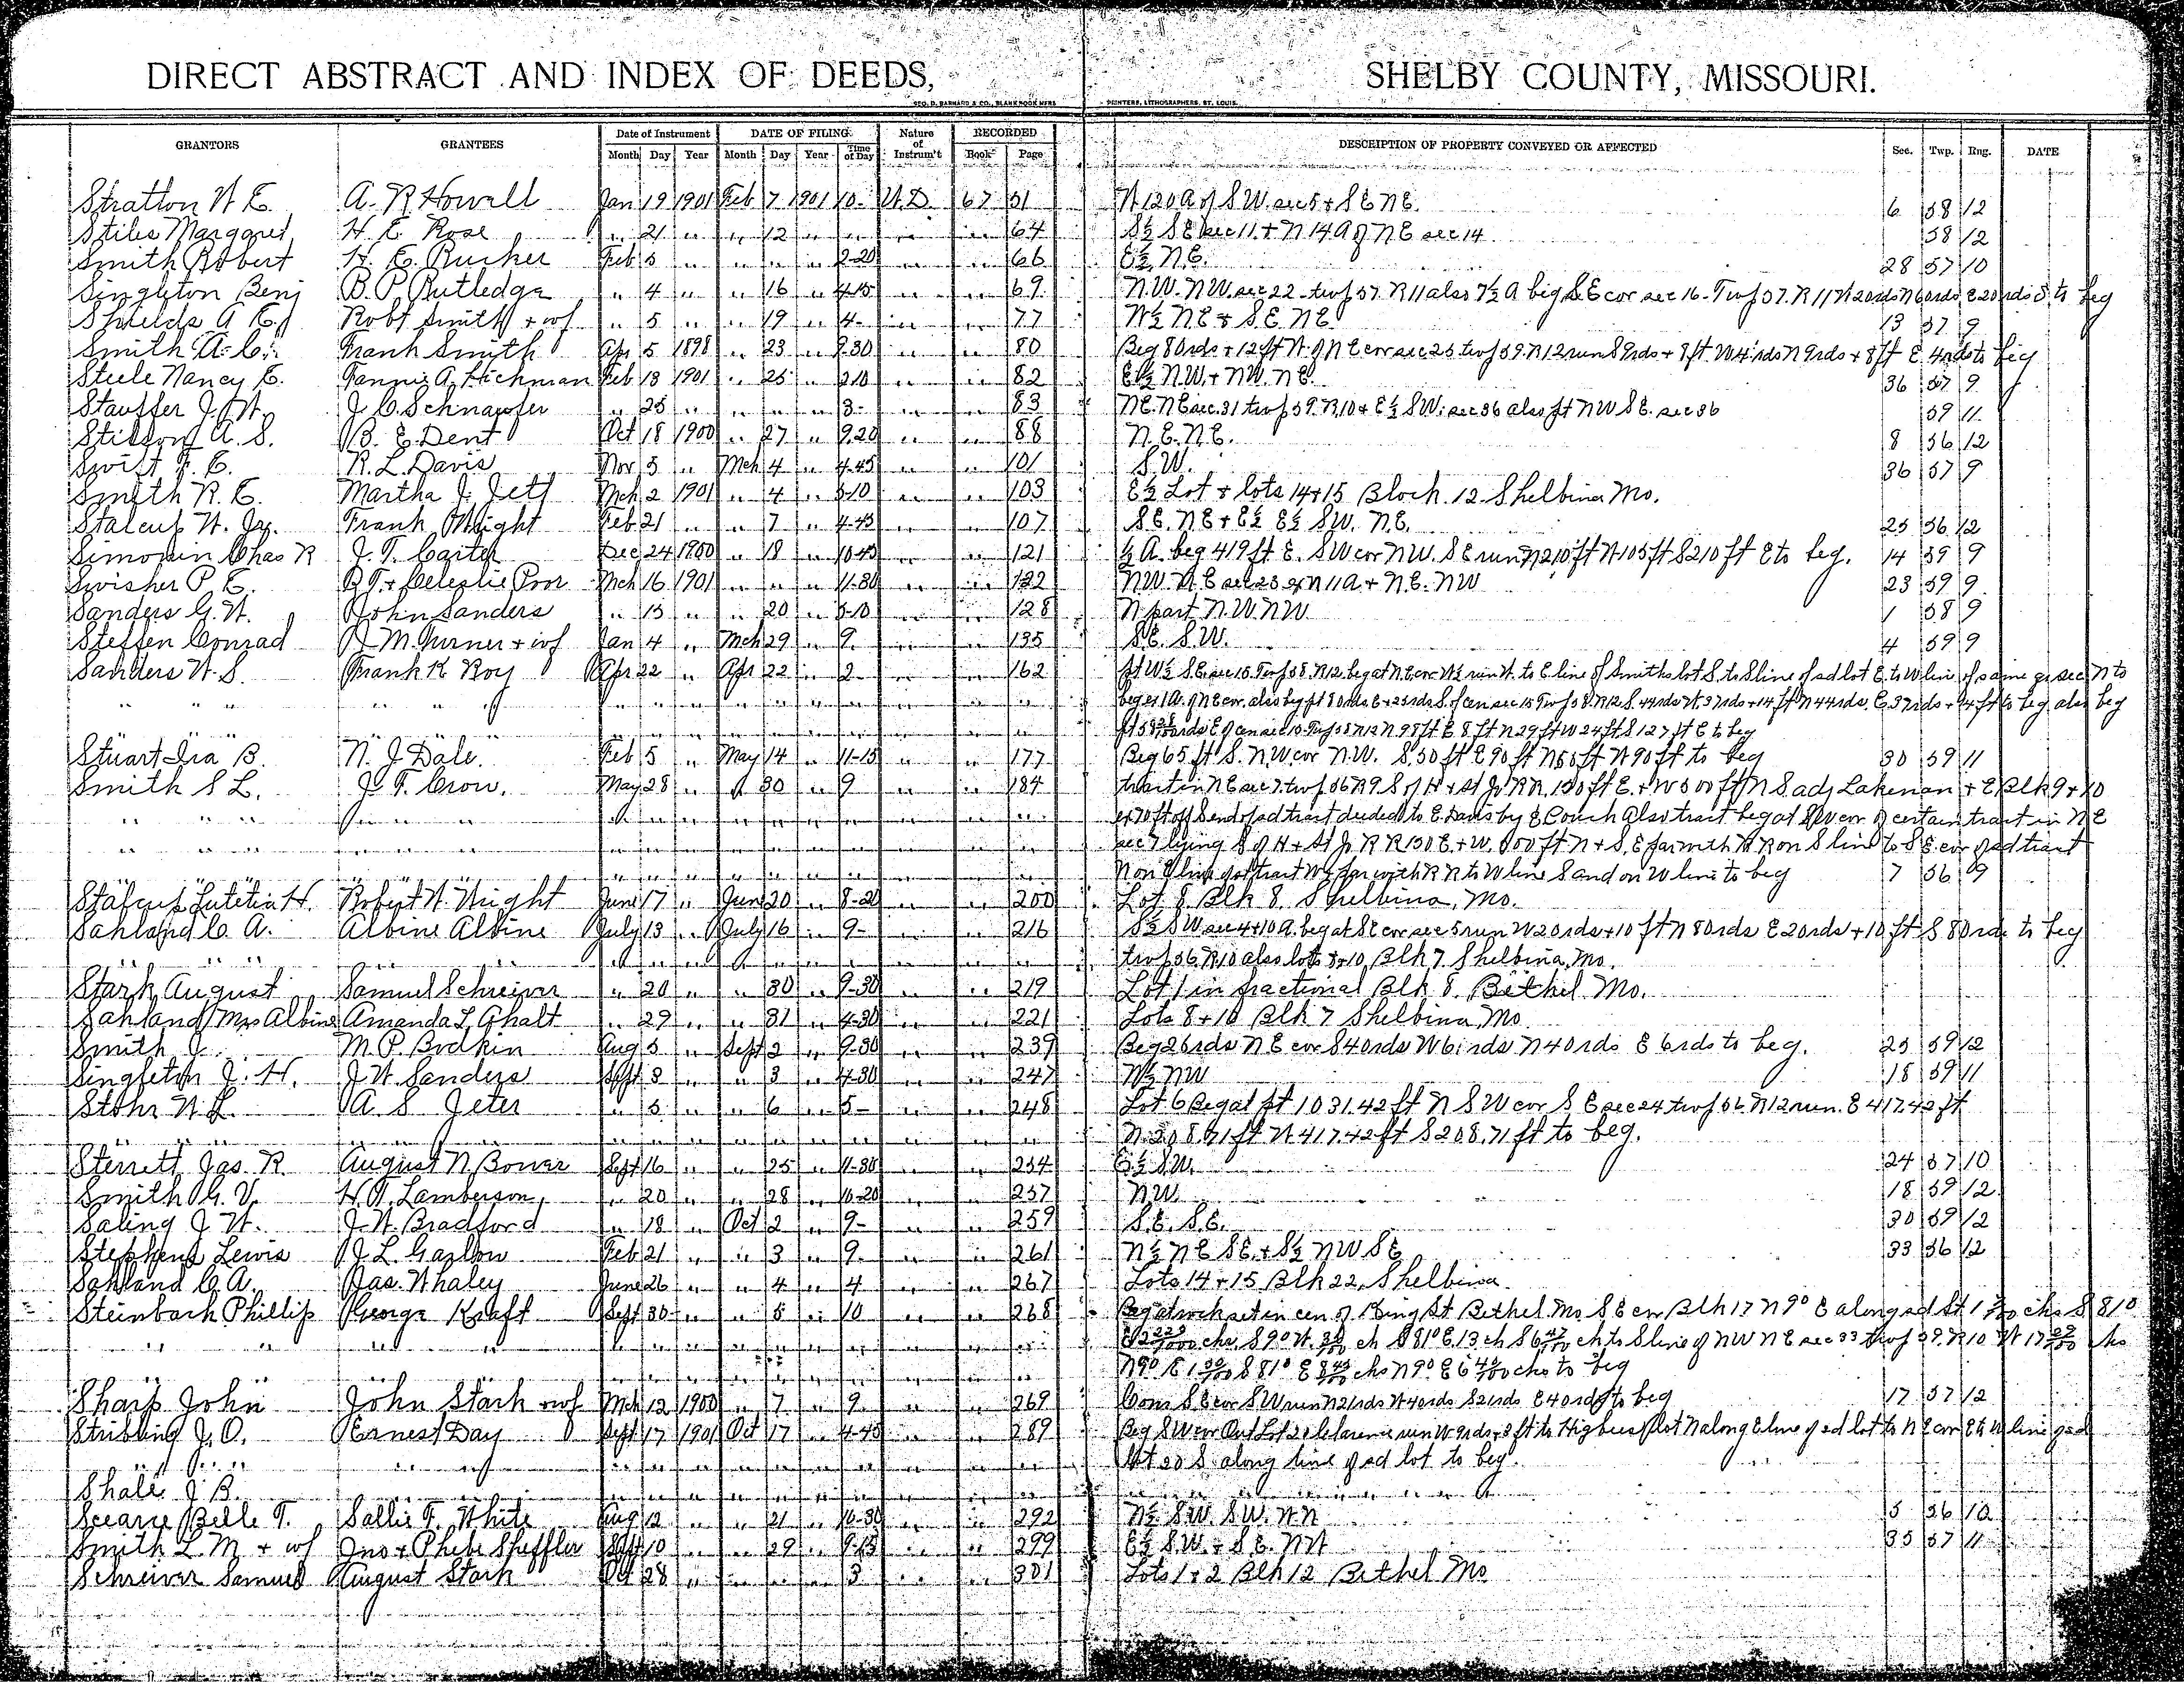 DIRECT ABSTRACT AND INDEX OF DEEDS, SHELBY COUNTY, MISSOURI.
GEO. D. BARNARD & CO., BLANK BOOK MFRS. PRINTERS, LITHOGRAPHERS, ST. LOUIS.
GRANTORS GRANTEES Date of Instrument DATE OF FILING Nature of Instrum't RECORDED DESCRIPTION OF PROPERTY CONVEYED OR AFFECTED Sec. Twp. Rng. DATE
Month Day Year Month Day Year Time of Day Book Page
Stratton W. E. A. R. Howell Jan 19 1901 Feb 7 1901 10- W.D. 67 51 W 120 A of S W. sec 5 + S E N E. 6 58 12
Stiles Margaret H. E. Rose " 21 " " 12 " " " " 64 S½ S E sec 11 + N 14 A of N E sec 14 58 12
Smith Robert H. E. Rucker Feb 5 " " " " 2-20 " " 66 E½ N.E. 28 57 10
Singleton Benj B. P. Rutledge " 4 " " 16 " 4-15 " " 69 N.W. N W. sec 22 - twp 57. R 11 also 7½ A beg S.E cor sec 16 - Twp 57. R 11 W 20 rds N 60 rds E 20 rds S to beg
Shields A. E. Robt Smith + wf " 5 " " 19 " 4- " " 77 W½ N E + S. E. N E 13 57 9
Smith A. C. Frank Smith Apr 5 1898 " 23 " 9-30 " " 80 Beg 80 rds + 12 ft W. of N E cor sec 25 twp 59. R 12 run S 9 rds + 8 ft. W 4 rds N 9 rds + 8 ft E. 4 rds to beg
Steele Nancy E. Fannie A. Hickman Feb 18 1901 " 25 " 2-10 " " 82 E½ N.W. + N W. N E. 36 57 9
Stauffer J. W. J. C. Schnaufer " 25 " " " " 3- " " 83 N E. N E sec. 31 twp 59. R. 10 + E½ S W. sec 36 also pt N W S E. sec 36 59 11
Stilson A. S. B. E. Dent Oct 18 1900 " 27 " 9-20 " " 88 N. E. N E. 8 56 12
Swift F. E. R. L. Davis Nov 5 " Mch 4 " 4-45 " " 101 S. W. 36 57 9
Smith R. E. Martha J. Jett Mch 2 1901 " 4 " 5-10 " " 103 E½ Lot + lots 14 + 15 Block. 12 Shelbina Mo.
Stalcup W. Jr. Frank Wright Feb 21 " " 7 " 4-45 " " 107 S E. N E + E½ E½ S W. N. E. 25 56 12
Chas R J. T. Carter Dec 24 1900 " 18 " 10-45 " " 121 ½ A. beg 419 ft E. S W cor N W. S E run N 210 ft W 105 ft S 210 ft E to beg. 14 59 9
Swisher P. E. B T. + Celestie Poor Mch 16 1901 " " " 11-30 " " 122 N W. N E sec 23 N 11 A + N. E. N W 23 59 9
Sanders G. W. John Sanders " 15 " " 20 " 5-10 " " 128 N part N. W. N W 1 58 9
Steffen Conrad M. Turner + wf Jan 4 " Mch 29 " 9. " " 135 S. E. S. W. 4 59 9
Sanders W. S. Frank K Roy Apr 22 " Apr 22 " 2 " " 162 pt W½ S. E. sec 15. Twp 58. R 12. beg at N. E cor W½ run W. to E line of Smiths lot S. to S line of sd lot E. to W line of same sec N to
" " " " " " beg ex 1 A. of N E cor. also beg pt 80 rds. E + 25 rds S. of cen sec 15 Twp 58. R 12 S. 44 rds W. 37 rds + 14 ft N 44 rds. E 37 rds + 14 ft to beg also beg
rds E of cen sec 15 Twp 58 R 12 N 98 ft E 8 ft N 29 ft W 24 ft S 127 ft E to beg
Stuart Ira B. N. J. Dale. Feb 5 " May 14 " 11-15 " " 177 Beg 65 ft S. N W cor N. W. S. 50 ft E 90 ft N 50 ft W 90 ft to beg 30 59 11
Smith S L. J. F. Crow. May 28 " " 30 " 9 " " 184 tract in N E sec 7. twp 56 R 9 S of H + St Jo R R. 150 ft E. + W 500 ft N S adj Lakenan + E Blk 9 + 10
" " " " " " ex 70 ft off S end of sd tract deeded to E. Davis by E Couch Also tract beg at S W cor of certain tract in N E
" " " sec 7 lying S of H + St Jo R R 150 E. + W. 500 ft N + S, E par with R R on S line to S E. cor of sd tract
N on E line of tract W par with R R to W line S and on W line to beg 7 56 9
Stalcup Lutetia H. Robert W. Wright June 17 " June 20 " 8-20 " " 200 Lot 8 Blk 8. Shelbina, Mo.
Sahland C. A. Albine Albine July 13 " July 16 " 9- " " 216 S½ S W sec 4 + 10 A. beg at S E cor sec 5 run W 20 rds + 10 ft N 80 rds E 20 rds + 10 ft S 80 rds to beg
" " " twp 56 R 10 also lots 8 + 10 Blk 7. Shelbina, Mo.
Stark August Samuel Schreiver " 20 " " 30 " 9-30 " " 219 Lot 1 in fractional Blk 8. Bethel Mo.
Sahland Mrs Albine Amanda L Ghalt " 29 " " 31 " 4-30 " " 221 Lots 8 + 10 Blk 7 Shelbina Mo
Smith J. M. P. Bodkin Aug 5 " Sept 2 " 9-30 " " 239 Beg 26 rds N E cor S 40 rds W 6 rds N 40 rds E 6 rds to beg. 25 59 12
Singleton J. H. J W. Sanders Sept 3 " " 3 " 4-30 " " 247 W½ N W 18 59 11
Stohr W. L. A. S Jeter " 5 " " 6 " 5- " " 248 Lot 6 Beg at pt 1031.42 ft N S W cor S. E sec 24 twp 56 R 12 run. E 417.42 ft
" " N 208.71 ft W 417.42 ft S 208.71 ft to beg.
Sterrett Jas. R. August N Bower Sept 16 " " 25 " 11-30 " " 254 E½ S W. 24 57 10
Smith G. V. H. A. Lamberson, " 20 " " 28 " 10-20 " " 257 N W 18 59 12
Saling J W. J. W. Bradford " 18 " Oct 2 " 9- " " 259 S. E. S. E. 30 59 12
Stephens Lewis J. L. Garlow Feb 21 " " 3 " 9. " " 261 N½ N E S E. + S½ N W S E 33 56 12
Sahland C. A. Jas. Whaley June 26 " " 4 " 4 " " 267 Lots 14 + 15 Blk 22, Shelbina
Steinbach Phillip George Kraft Sept 30 " " 5 " 10 " " 268 Beg at rock set in cen of King St Bethel Mo S E cor Blk 17 N 9° E along sd St chs S 81°
chs S 9° W. ch S 81° E. 13 ch S 6 47/100 ch to S line of N W N E sec 33 twp 59. R 10 W 17 chs
N 9° E S 81° E chs N 9° E chs to beg
Sharp John John Stark + wf Mch 12 1900 " 7 " 9 " " 269 Com S E cor S W run N 21 rds W 40 rds S 21 rds E 40 rds to beg 17 57 12
Stribling J. O. Ernest Day Sept 17 1901 Oct 17 " 4-45 " " 289 Beg S W cor Out Lot 20 Clarence run W 9 rds + 3 ft to Higbees lot N along E line of sd lot to N E cor E to W line of sd
" " " " " lot 20 S. along line of sd lot to beg.
Shale J B. " " "
Scearce Belle T. Sallie F. White Aug 12 " " 21 " 10-30 " " 292 N½ S W. S W. N W 5 56 10
Smith L. M + wf Jno + Phebe Sheffler Sept 10 " " 29 " 9-15 " " 299 E½ S. W. + S. E. N W 35 57 11
Schreiver Samuel August Stark Oct 28 " " " " 3 " " 301 Lots 1 + 2 Blk 12 Bethel Mo